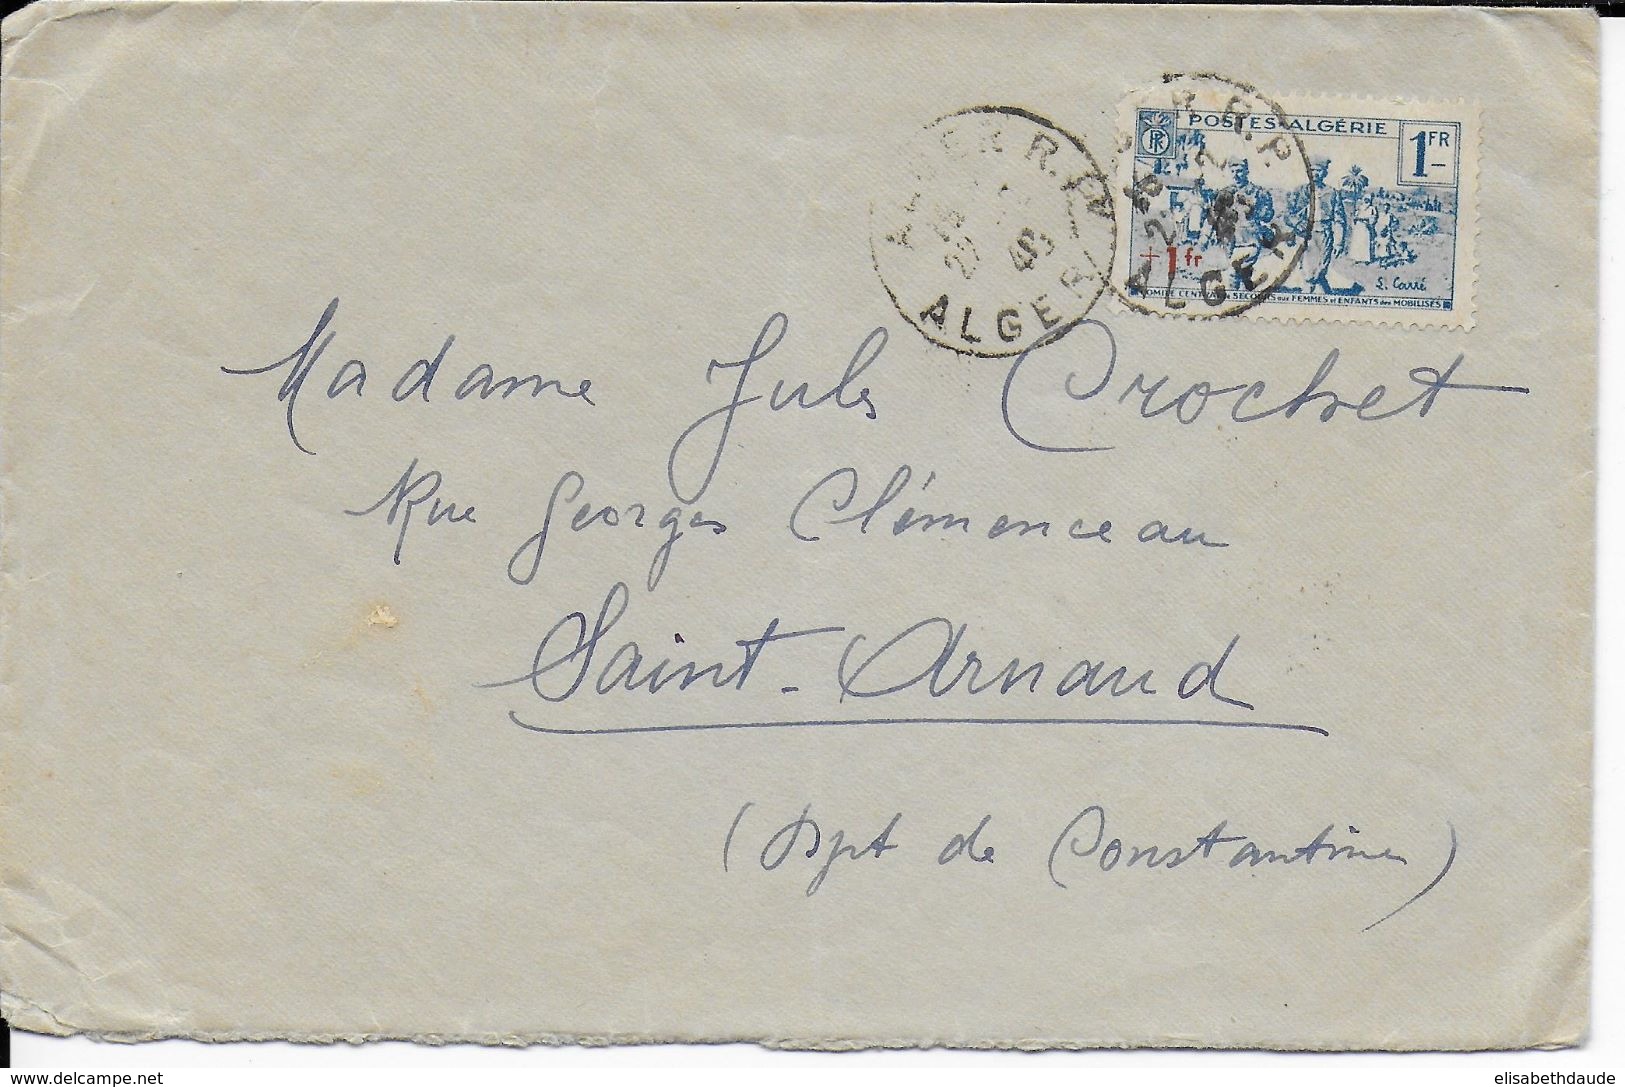 POSTES-ALGÉRIE
1FR
RF
+1fr
L. Carré
COMITÉ CENTRAL DE SECOURS aux FEMMES et ENFANTS des MOBILISÉS
ALGER R.P.
ALGER
R.P.
ALGER
Madame Jules Crochet
Rue Georges Clémenceau
Saint-Arnaud
(Dpt de Constantine)
elisabethdaude
www.delcampe.net